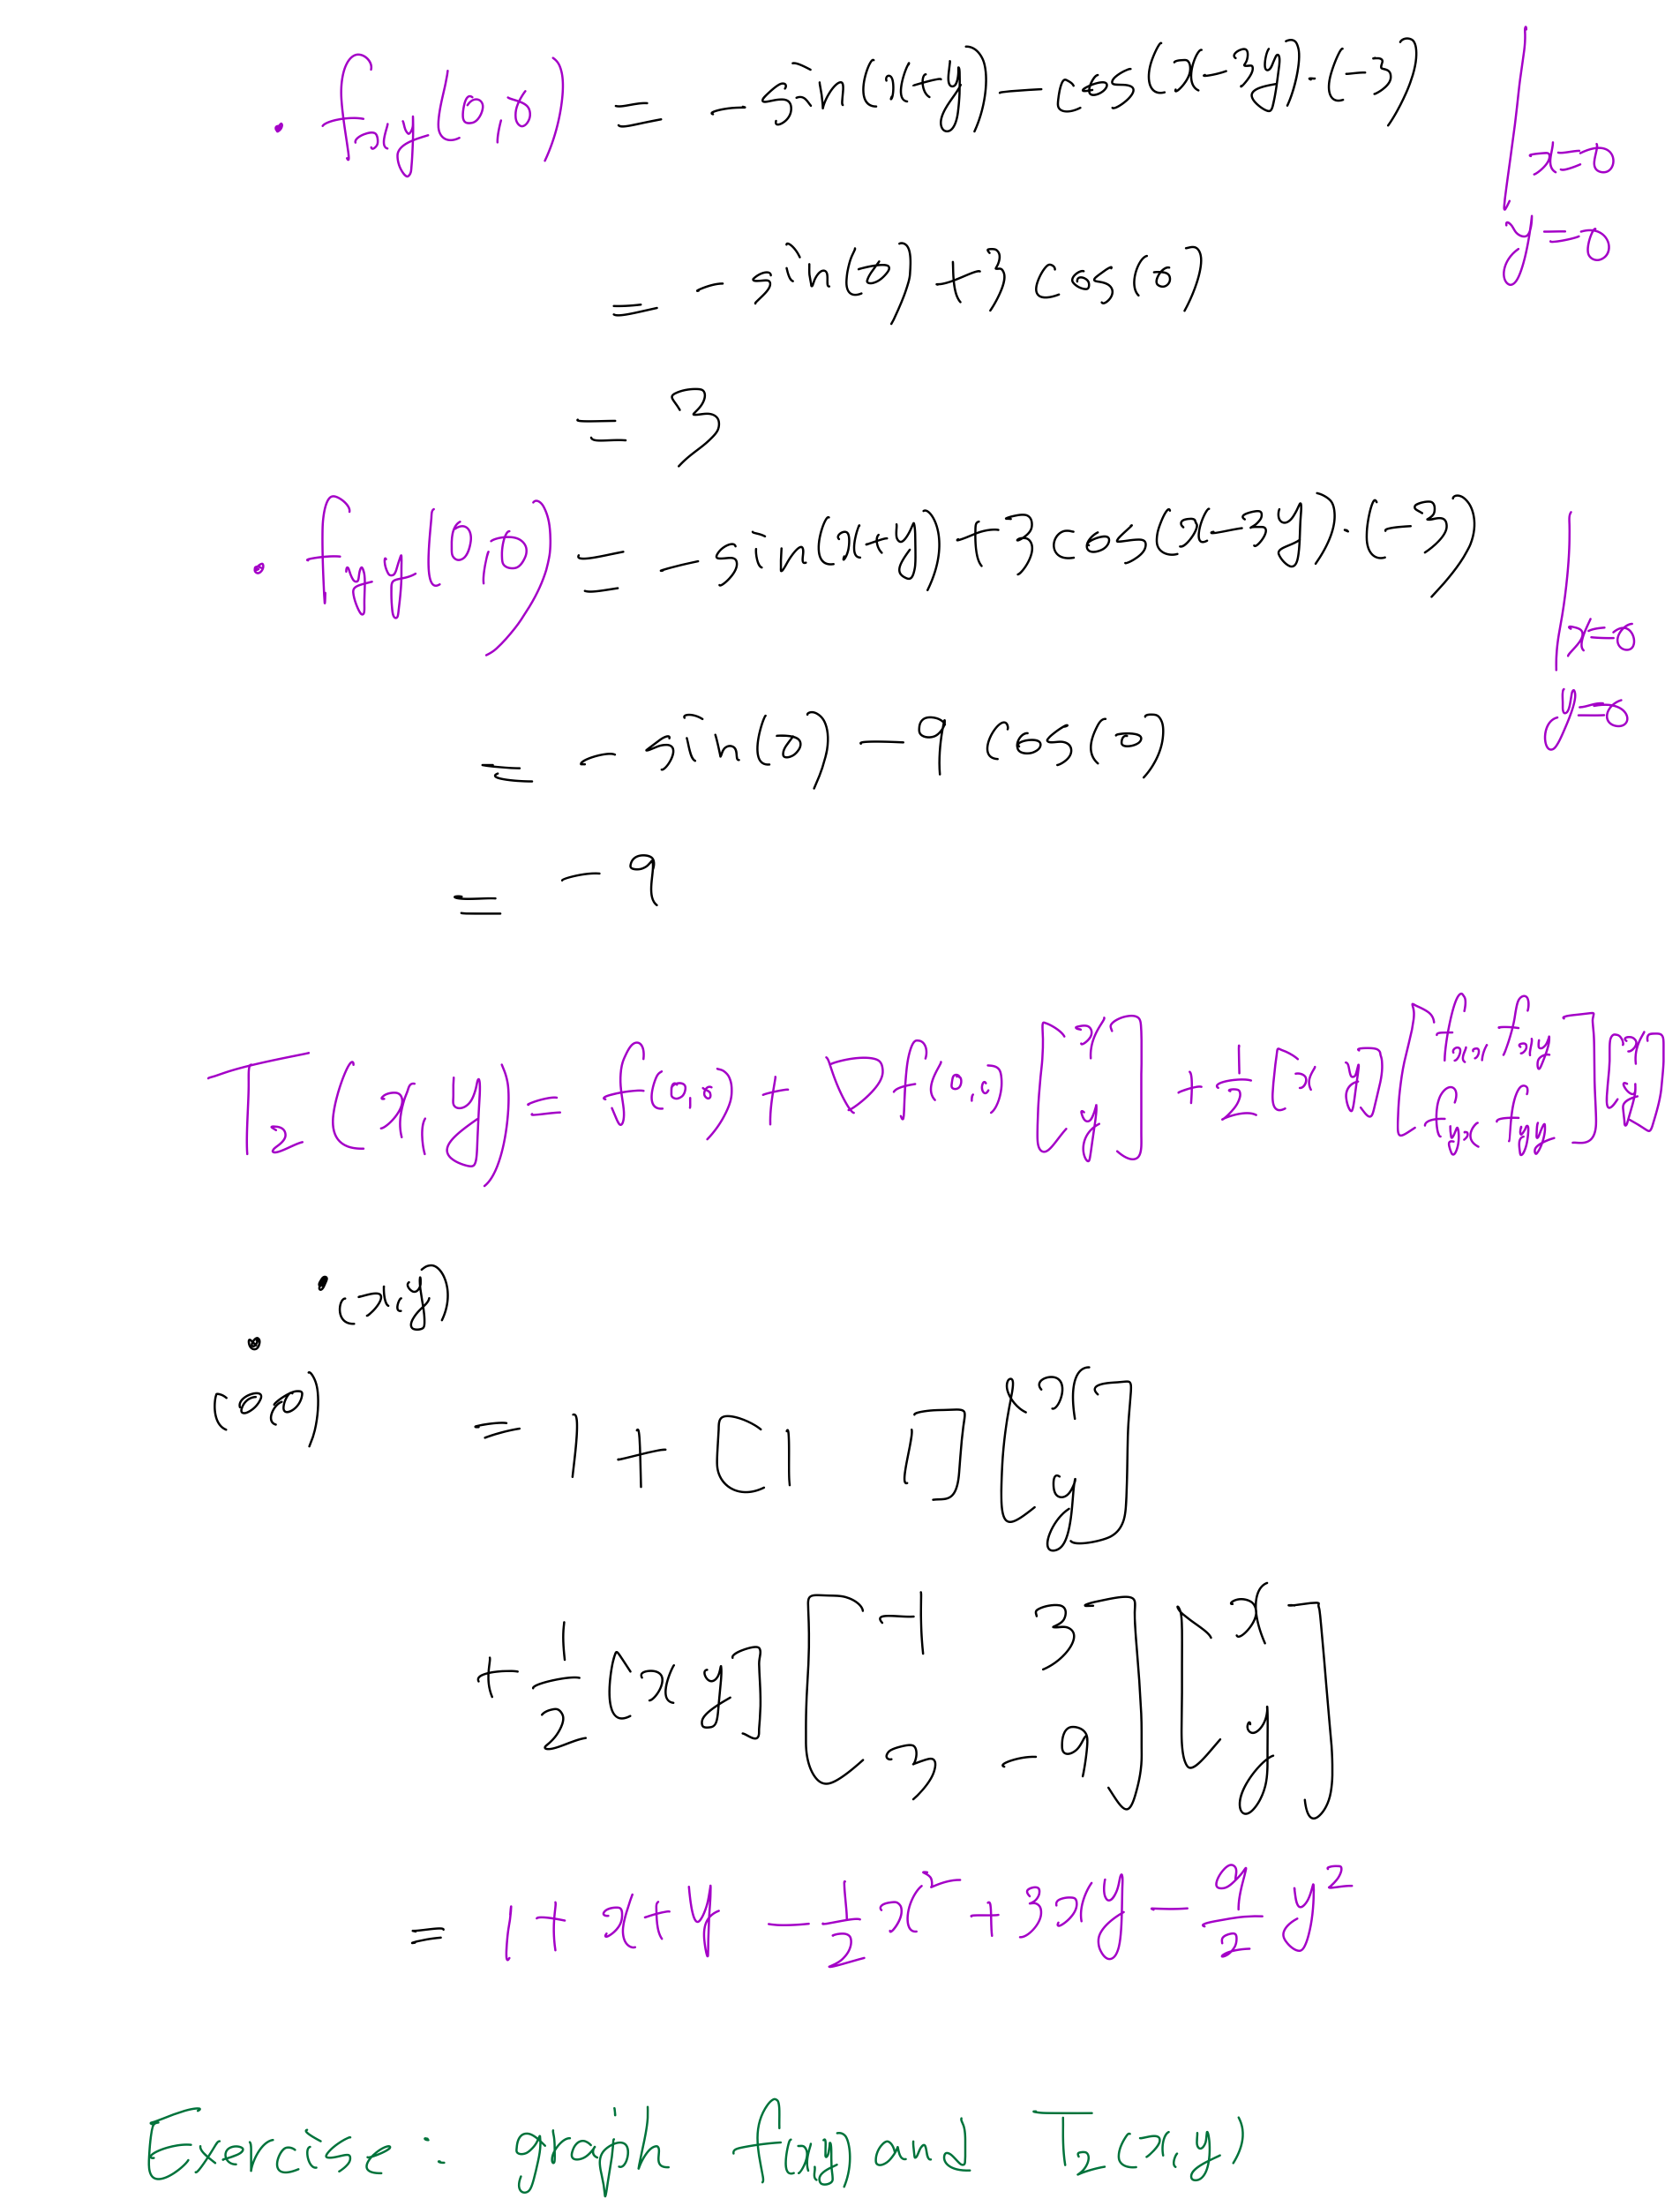 · f_xy(0,0) = - sin(x+y) - cos(x-3y)·(-3) | x=0
y=0
= - sin(0) + 3 cos(0)
= 3
· f_yy(0,0) = - sin(x+y) + 3 cos(x-3y)·(-3) | x=0
y=0
= - sin(0) - 9 cos(0)
= - 9
T_2(x,y) = f(0,0) + Df(0,0) [x y] + 1/2 [x y] [f_xx f_xy f_yx f_yy] [x y]
·(x,y)
·
(0,0)
= 1 + [1 1] [x y]
+ 1/2 [x y] [-1 3 3 -9] [x y]
= 1 + x + y - 1/2 x² + 3xy - 9/2 y²
Exercise: graph f(x,y) and T_2(x,y)